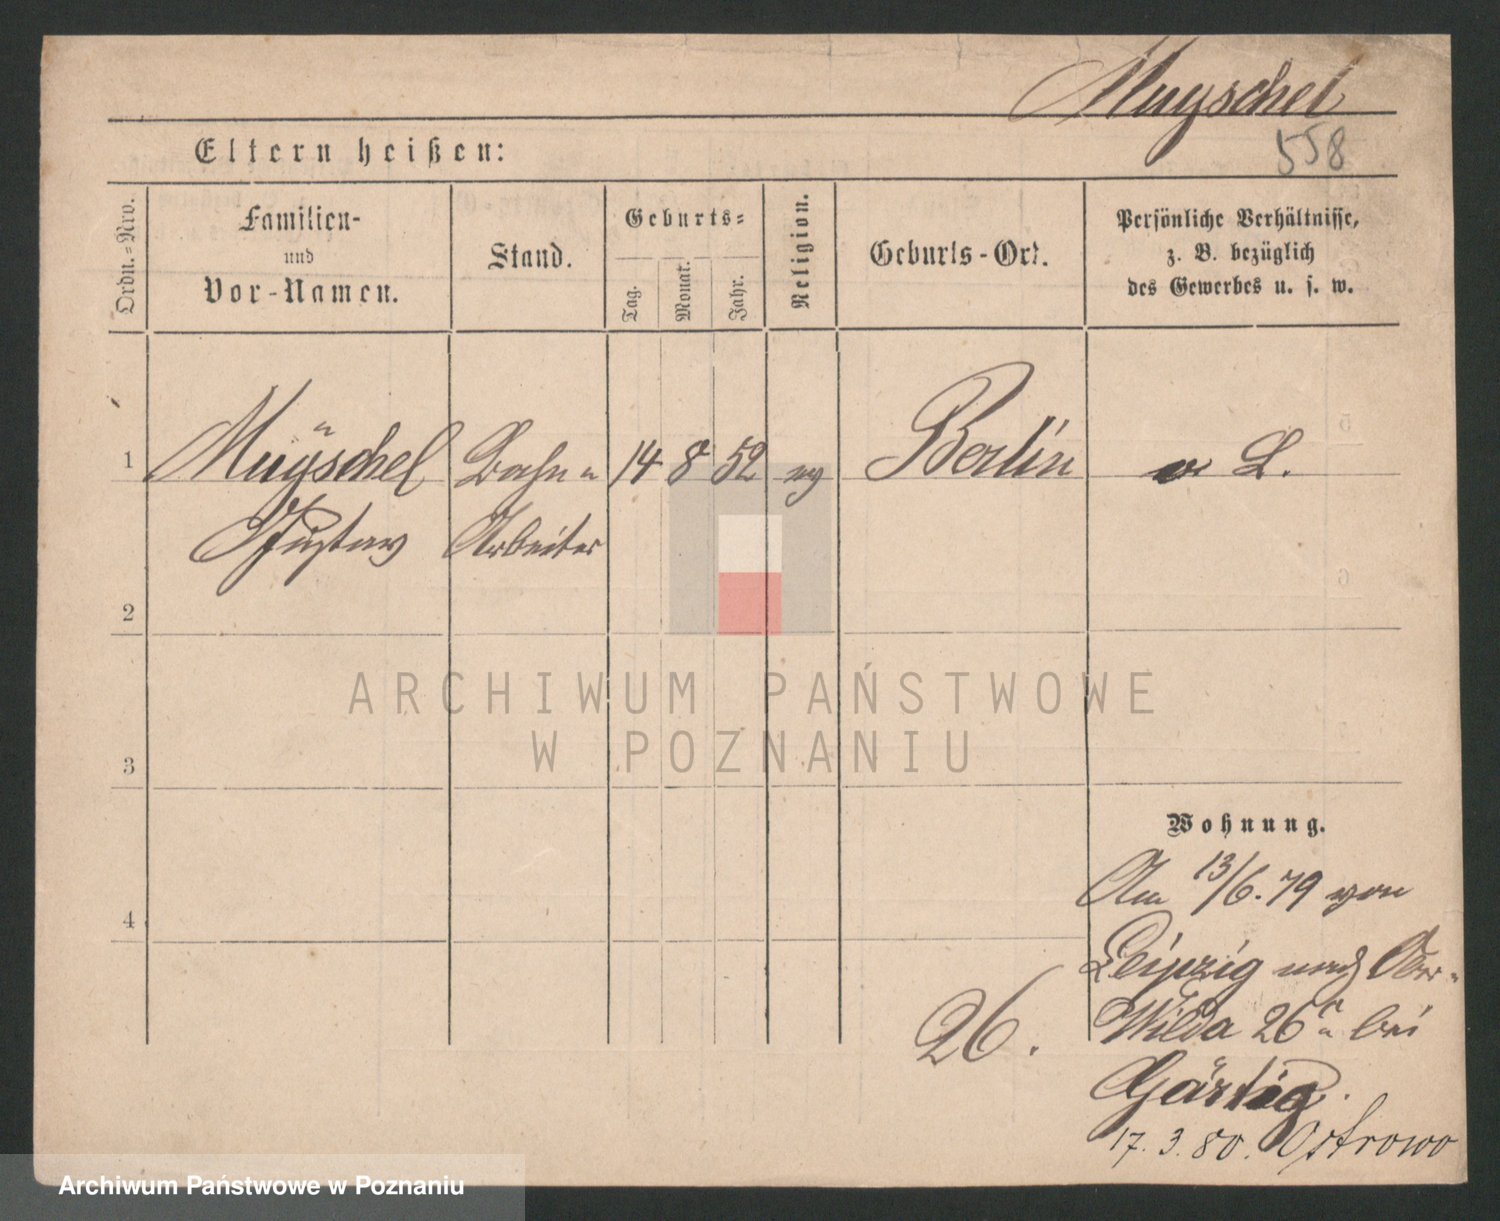 Muyschel
558
Eltern heißen:
Ordn.-Nro.
Familien-
und
Vor-Namen.
Stand.
Geburts-
Tag.
Monat.
Jahr.
Religion.
Geburts-Ort.
Persönliche Verhältnisse,
z. B. bezüglich
des Gewerbes u. s. w.
1
Muÿschel Bahn- 14 8 52 ev Berlin L.
Gustav Arbeiter
2
3
4
ARCHIWUM PAŃSTWOWE
W POZNANIU
Wohnung.
Am 13/6.79 von
Leipzig nach Ober-
Wilda 26 bei
26.
Gärtig.
17.3.80. Ostrowo
Archiwum Państwowe w Poznaniu